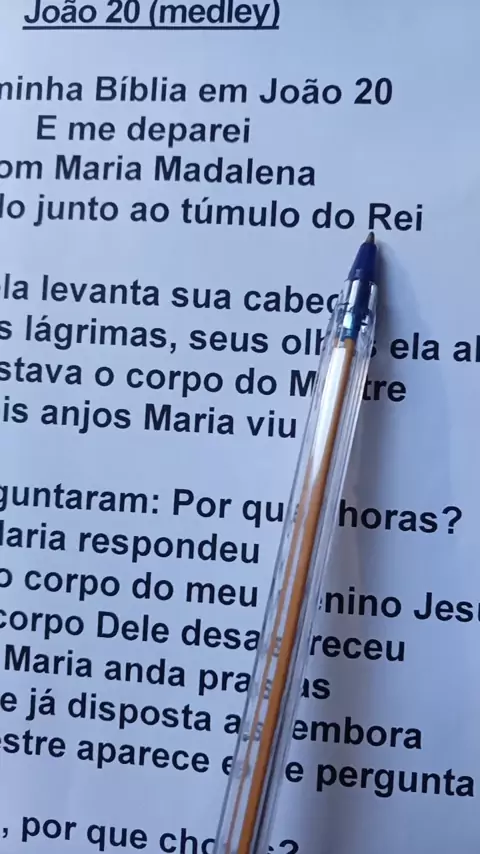 João 20 (medley)
minha Bíblia em João 20
E me deparei
om Maria Madalena
do junto ao túmulo do Rei
la levanta sua
s lágrimas, seus ela
stava o corpo do
is anjos Maria viu
guntaram: Por
Maria respondeu
o corpo do meu
corpo Dele
Maria anda
e já disposta embora
stre aparece e pergunta
, por que